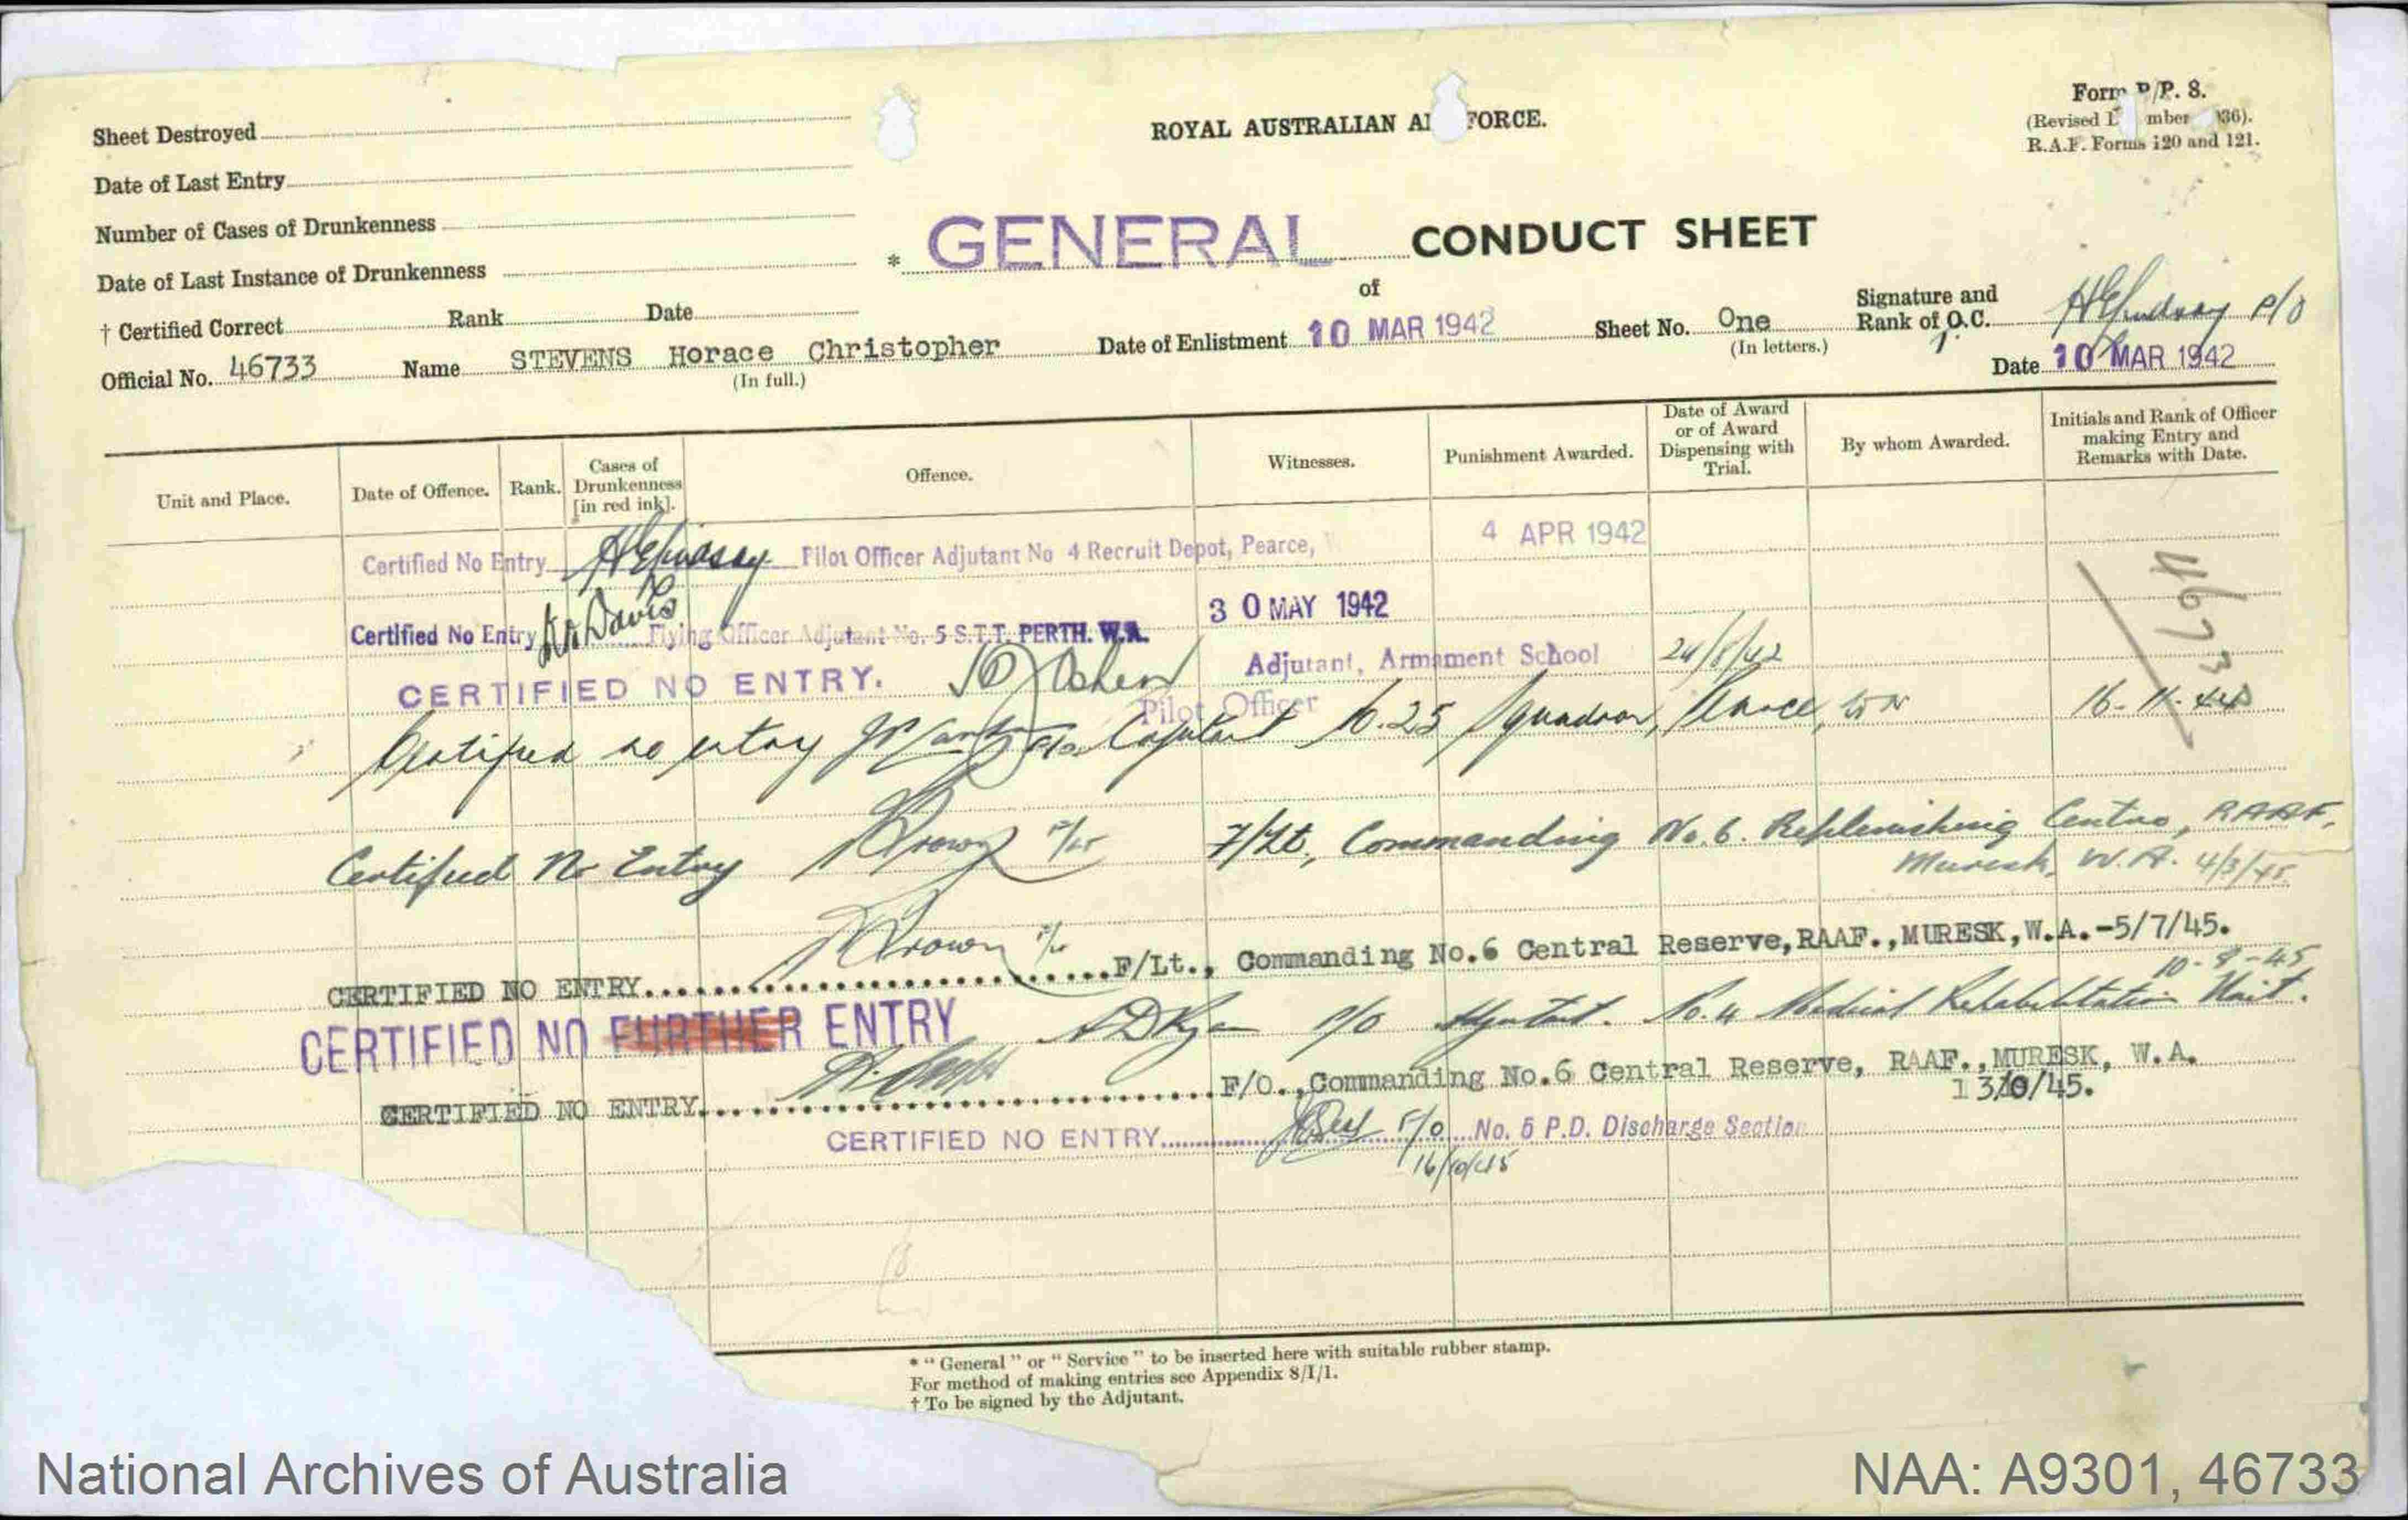 Form P/P. 8.
ROYAL AUSTRALIAN AI FORCE.
(Revised mber 36).
R.A.F. Forms 120 and 121.
Sheet Destroyed
Date of Last Entry
Number of Cases of Drunkenness
* GENERAL CONDUCT SHEET
Date of Last Instance of Drunkenness
of
† Certified Correct Rank Date
Official No. 46733 Name STEVENS Horace Christopher
(In full.)
Date of Enlistment 10 MAR 1942 Sheet No. One
(In letters.)
Signature and
Rank of O.C. P/O
Date 10 MAR 1942
Unit and Place.
Date of Offence.
Rank.
Cases of
Drunkenness
[in red ink].
Offence.
Witnesses.
Punishment Awarded.
Date of Award
or of Award
Dispensing with
Trial.
By whom Awarded.
Initials and Rank of Officer
making Entry and
Remarks with Date.
Certified No Entry Pilot Officer Adjutant No 4 Recruit Depot, Pearce, 4 APR 1942
46733
Certified No Entry Davis Flying Officer Adjutant No. 5 S.T.T. PERTH. W.A. 30 MAY 1942
CERTIFIED NO ENTRY. Adjutant, Armament School 24/8/42
Pilot Officer
Certified no entry No. 25 Squadron, Pearce, 16-11-
Certified No Entry Brown F/Lt F/Lt, Commanding No. 6. Replenishing Centre, RAAF,
Muresk, W.A. 4/3/45
CERTIFIED NO ENTRY Brown F/Lt., Commanding No.6 Central Reserve, RAAF., MURESK, W.A.-5/7/45.
10-8-45
CERTIFIED NO FURTHER ENTRY P/O Adjutant. No. 4 Medical Rehabilitation Unit.
CERTIFIED NO ENTRY F/O., Commanding No.6 Central Reserve, RAAF., MURESK, W.A.
13/10/45.
CERTIFIED NO ENTRY F/O No. 5 P.D. Discharge Section
16/10/45
* " General " or " Service " to be inserted here with suitable rubber stamp.
For method of making entries see Appendix 8/I/1.
† To be signed by the Adjutant.
National Archives of Australia
NAA: A9301, 46733